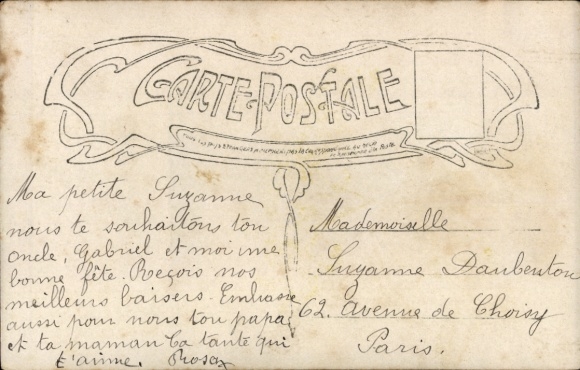 CARTE POSTALE
Ma petite Suzanne
nous te souhaitons ton
oncle, Gabriel et moi une
bonne fête. Reçois nos
meilleurs baisers. Embrasse
aussi pour nous ton papa
et ta maman Ta tante qui
t'aime. Rosa
Mademoiselle
Suzanne Daubenton
62. avenue de Choisy
Paris.